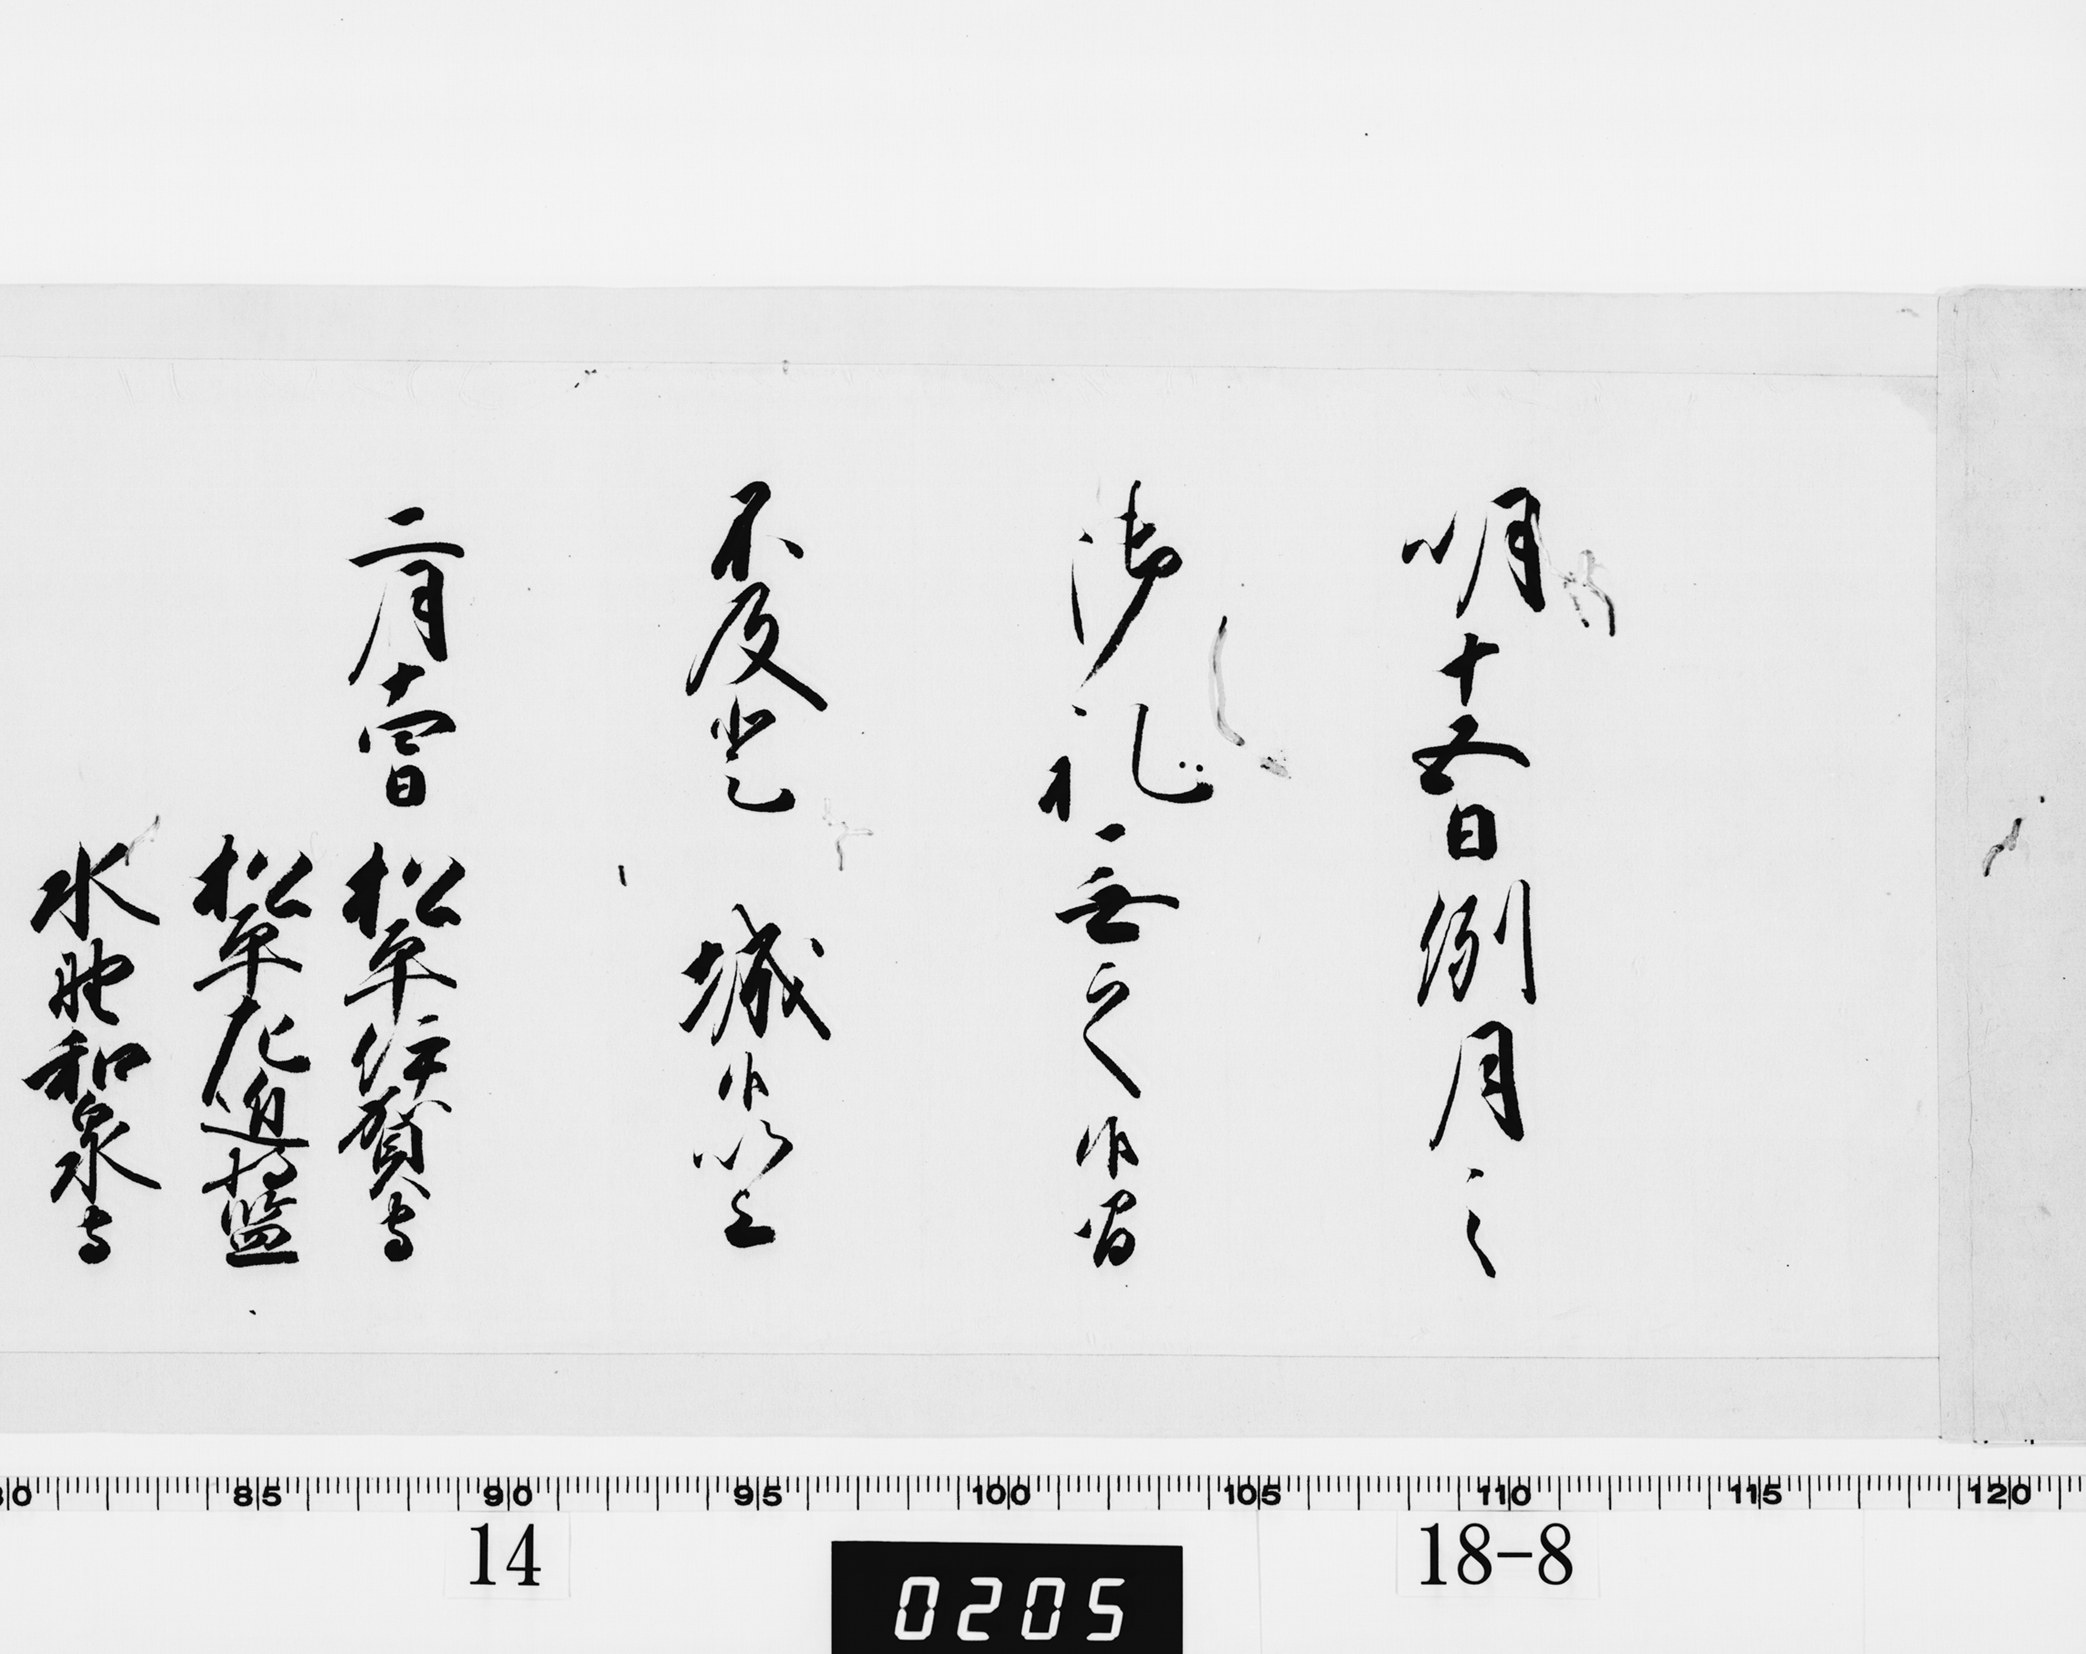 明十五日例月之
御礼無之候間
不及登　城候以上
二月十四日
松平伊賀守
松平左近将監
水野和泉守
80 85 90 95 100 105 110 115 120
14
18-8
0205